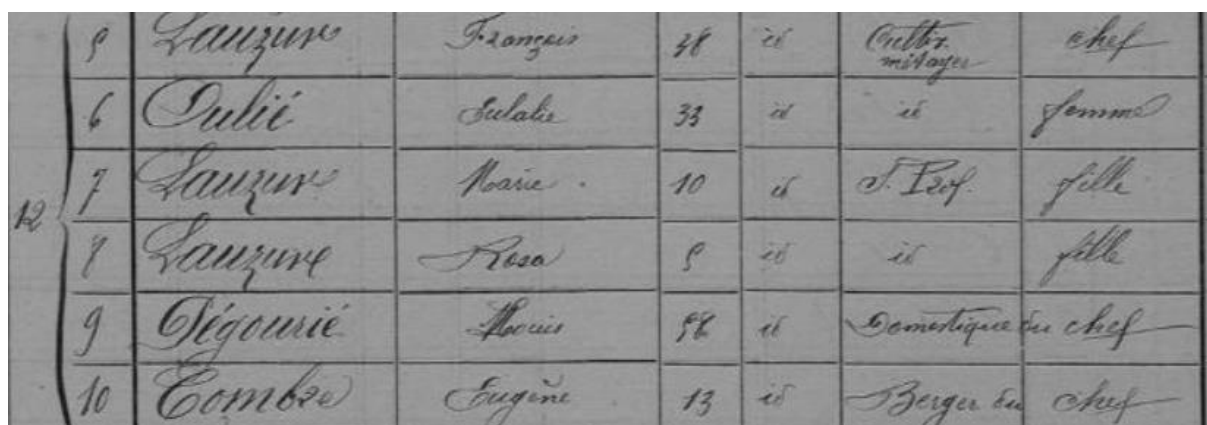 5 Lauzure François 38 id Cultivr métayer chef
6 Julié Eulalie 33 id id femme
12 7 Lauzure Marie 10 id S. Prof. fille
8 Lauzure Rosa 5 id id fille
9 Pégourié Louis 58 id Domestique du chef
10 Combre Eugène 13 id Berger du chef